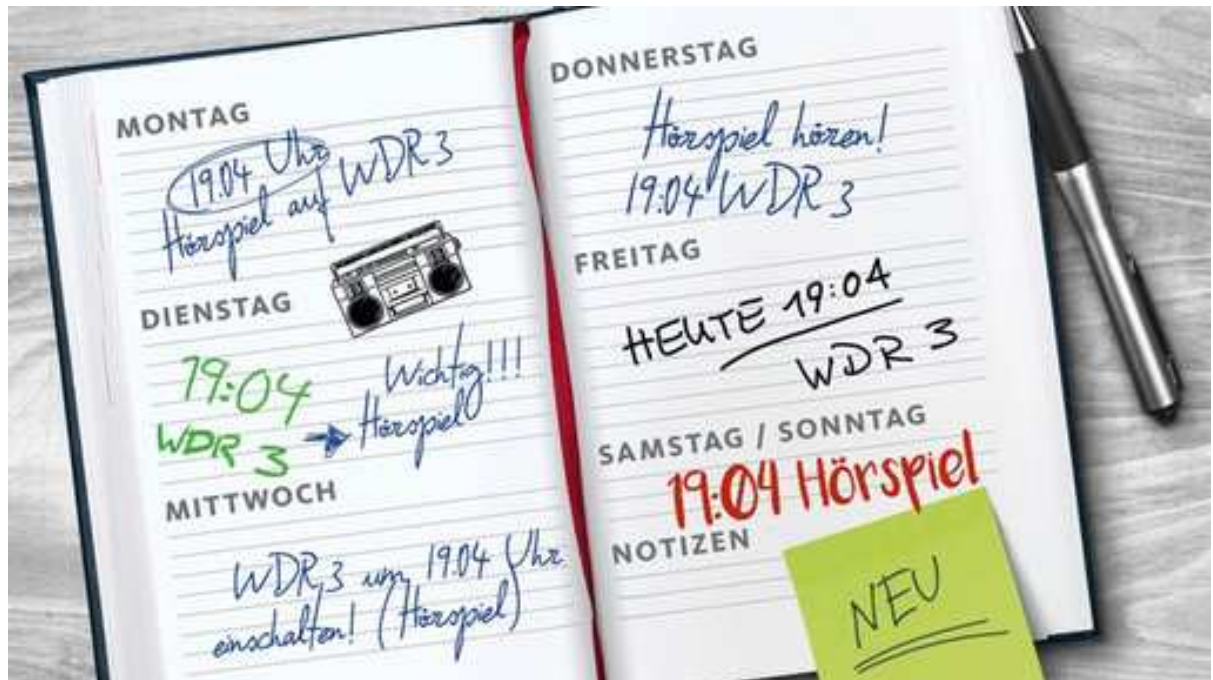 MONTAG
19.04 Uhr
Hörspiel auf WDR 3
DIENSTAG
19:04
WDR 3
Wichtig!!!
→ Hörspiel
MITTWOCH
WDR 3 um 19.04 Uhr
einschalten! (Hörspiel)
DONNERSTAG
Hörspiel hören!
19:04 WDR 3
FREITAG
HEUTE 19:04
WDR 3
SAMSTAG / SONNTAG
19:04 Hörspiel
NOTIZEN
NEU